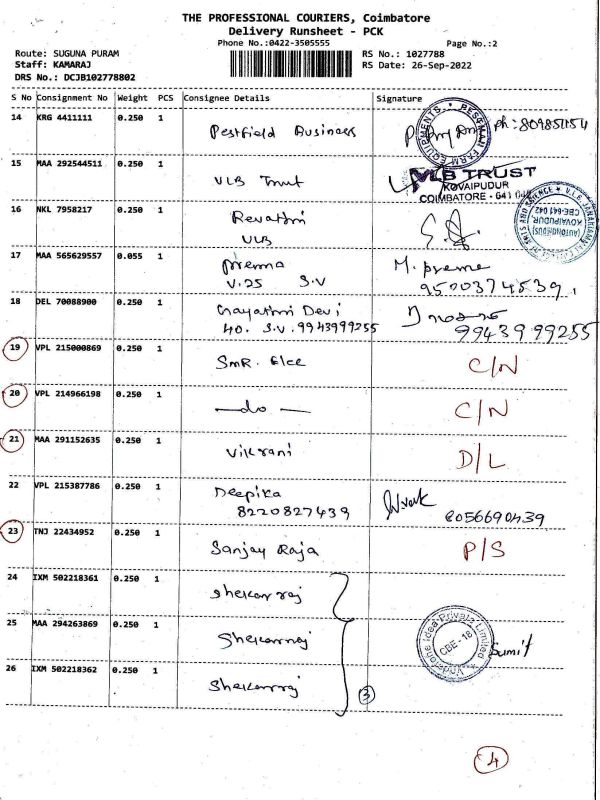 THE PROFESSIONAL COURIERS, Coimbatore
Delivery Runsheet - PCK
Phone No.:0422-3505555
Page No.:2
Route: SUGUNA PURAM
RS No.: 1027788
Staff: KAMARAJ
RS Date: 26-Sep-2022
DRS No.: DCJB102778802
S No Consignment No Weight PCS Consignee Details Signature
14 KRG 4411111 0.250 1 Pestfield Business
PESTMAN FARM EQUIPMENTS
15 MAA 292544511 0.250 1 VLB Trust
VLB TRUST
KOVAIPUDUR
COIMBATORE - 641 042
16 NKL 7958217 0.250 1 Revathi
VLB
(AUTONOMOUS)
KOVAIPUDUR,
CBE-641 042
17 MAA 565629557 0.055 1 prema M. prema
V.25 S.V 9500374539
18 DEL 70088900 0.250 1 Gayathri Devi
40. S.V. 9943999255 9943999255
19 VPL 215000869 0.250 1 SMR. Elec C/N
20 VPL 214966198 0.250 1 —do— C/N
21 MAA 291152635 0.250 1 Vikrani D/L
22 VPL 215387786 0.250 1 Deepika
8220827439 8056690439
23 TNJ 22434952 0.250 1 Sanjay Raja P/S
24 IXM 502218361 0.250 1 Shekarraj
25 MAA 294263869 0.250 1 Shekarraj
CBE - 18
Sumit
26 IXM 502218362 0.250 1 Shekarraj
3
4